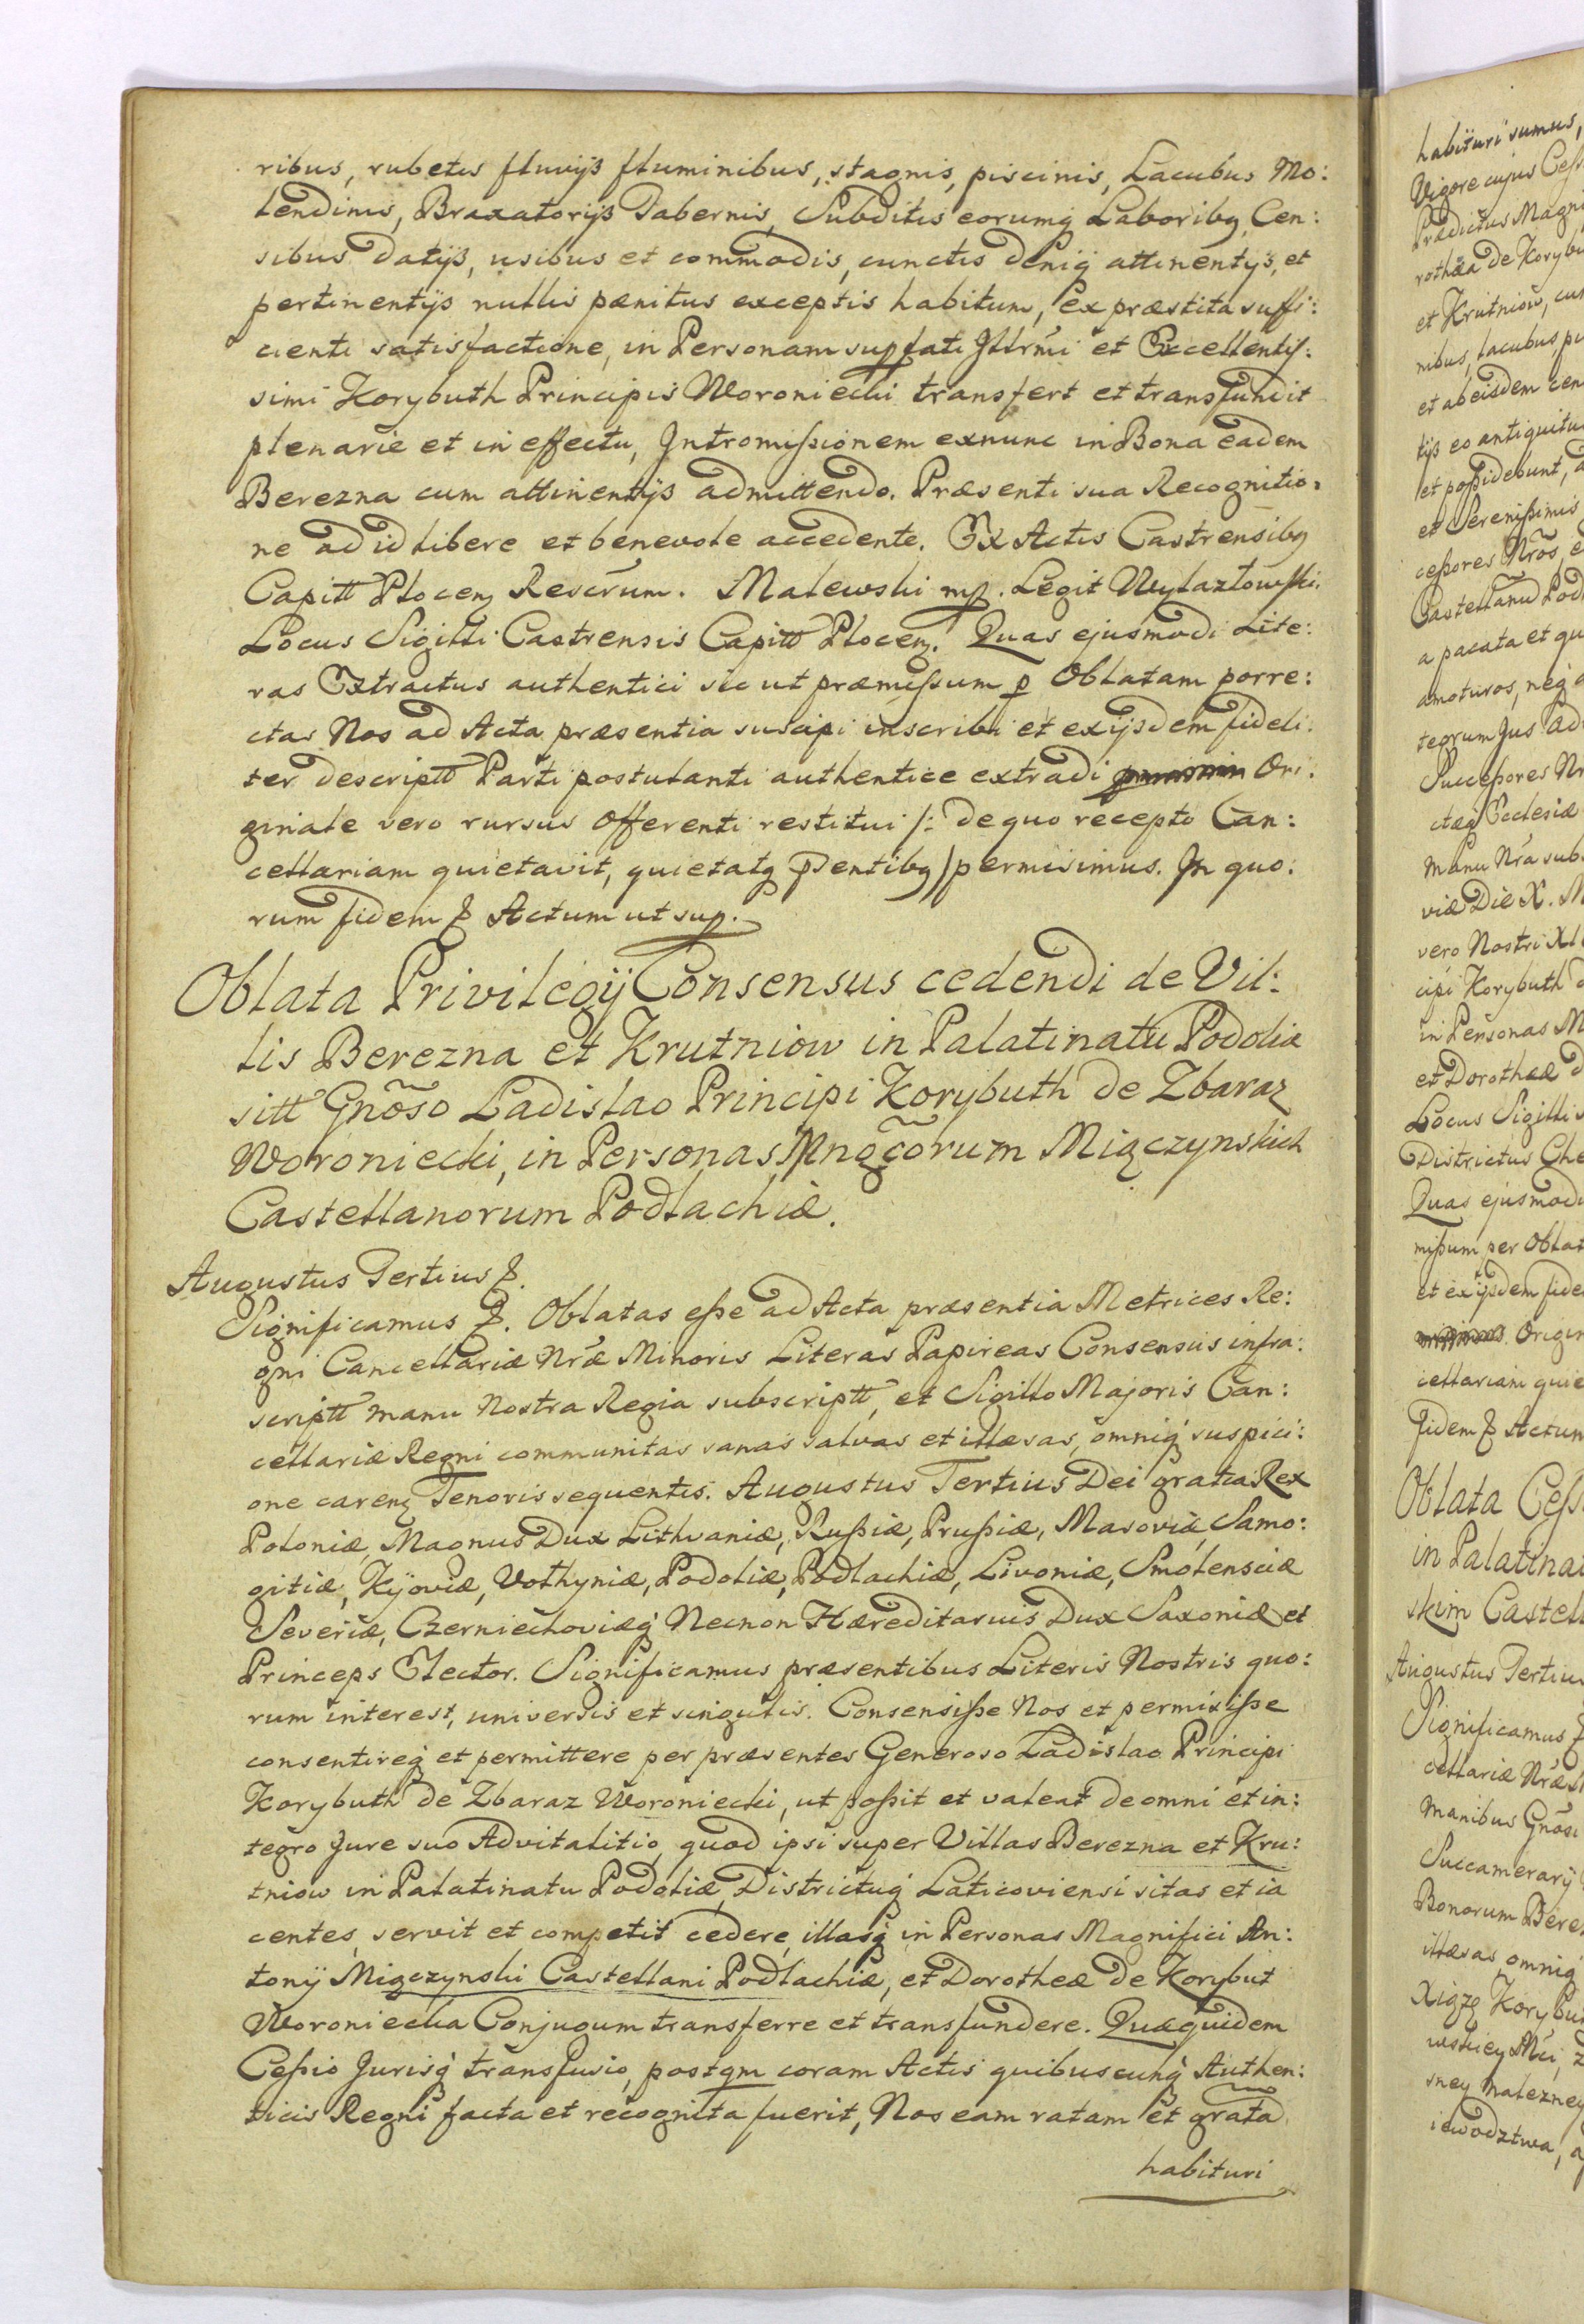 ribus, rubetis fluvijs fluminibus, stagnis, piscinis, Lacubus Mo:
lendinis, Braxatorijs Tabernis, Subditis eorumq Laboribq, Cen:
sibus datijs, usibus et commodis, cunctis deniq attinentijs, et
pertinentijs nullis pænitus exceptis habitum, ex præstita suffi:
cienti satisfactione, in Personam supfati Jllrmi et Excellentis:
simi Korybuth Principis Woroniecki transfert et transfundit
plenarie et in effectu, Jntromissionem exnunc in Bona eadem
Berezna cum attinentijs admittendo. Præsenti sua Recognitio:
ne ad id libere et benevole accedente. Ex Actis Castrensibq
Capitt Plocenz Rescrum. Malewski mp. Legit Wylazłowski.
Locus Sigilli Castrensis Capitt Plocenz. Quas ejusmodi Lite:
ras Extractus authentici sic ut præmissum p Oblatam porre:
ctas Nos ad Acta præsentia suscipi inscribi et exijsdem fideli:
ter descriptt Parti postulanti authentice extradi Ori:
ginale vero rursus Offerenti restitui /: de quo recepto Can:
cellariam quietavit, quietatq pdentibq/ permisimus. Jn quo:
rum fidem & Actum ut sup.
Oblata Privilegij Consensus cedendi de Vil:
lis Berezna et Krutniow in Palatinatu Podoliæ
sitt Gnõso Ladislao Principi Korybuth de Zbaraz
Woroniecki, in Personas Mngcõrum Miączynskich
Castellanorum Podlachiæ.
Augustus Tertius &.
Significamus &. Oblatas esse ad Acta præsentia Metrices Re:
gni Cancellariæ Nræ Minoris Literas Papireas Consensus infra:
scriptt manu Nostra Regia subscriptt, et Sigillo Majoris Can:
cellariæ Regni communitas sanas salvas et illæsas, omniq suspici:
one carenz Tenoris sequentis. Augustus Tertius Dei gratia Rex
Poloniæ, Magnus Dux Lithvaniæ, Russiæ, Prussiæ, Masoviæ, Samo:
gitiæ, Kijoviæ, Volhyniæ, Podoliæ, Podlachiæ, Livoniæ, Smolensciæ
Severiæ, Czerniechoviæq Necnon Hæreditarius Dux Saxoniæ et
Princeps Elector. Significamus præsentibus Literis Nostris quo:
rum interest, universis et singulis. Consensisse Nos et permisisse
consentireq et permittere per præsentes Generoso Ladislao Principi
Korybuth de Zbaraz Woroniecki, ut possit et valeat de omni et in:
tegro Jure suo Advitalitio, quod ipsi super Villas Berezna et Kru:
tniow in Palatinatu Podoliæ, Districtuq Laticoviensi sitas et ia
centes, servit et competit cedere, illasq in Personas Magnifici An:
tonij Miączynski Castellani Podlachiæ, et Dorotheæ de Korybut
Woroniecka Conjugum transferre et transfundere. Quæquidem
Cessio Jurisq transfusio, postqm coram Actis quibuscunq Authen:
ticis Regni facta et recognita fuerit, Nos eam ratam et grata
habituri
habituri sumus,
Vigore cujus Cess
Prædictus Magni
rothæa de Korybu
et Krutniow, cum
nibus, lacubus, pi
et ab eisdem cen
tijs eo antiquitu
et possidebunt,
et Serenissimis
cessores Nrõs, e
Castellanũ Podl
a pacata et qu
amoturos, neq a
tegrum Jus Ad
Successores Nr
ctæq Ecclesiæ
Manu Nra sub
viæ Die X. M
vero Nostri XL
cipi Korybuth d
in Personas M
et Dorotheæ d
Locus Sigilli
Districtus Che
Quas ejusmodi
missum per Oblat
et exijsdem fide
Origin
cellariam quie
fidem & Actum
Oblata Cess
in Palatina
skim Castel
Augustus Tertius
Significamus &
cellariæ Nræ
Manibus Gnõsi
Succamerarij
Bonorum Berez
illæsas, omniq
Xiążę Korybu
wskiey Mći, z
sney należney
iewodztwa, a